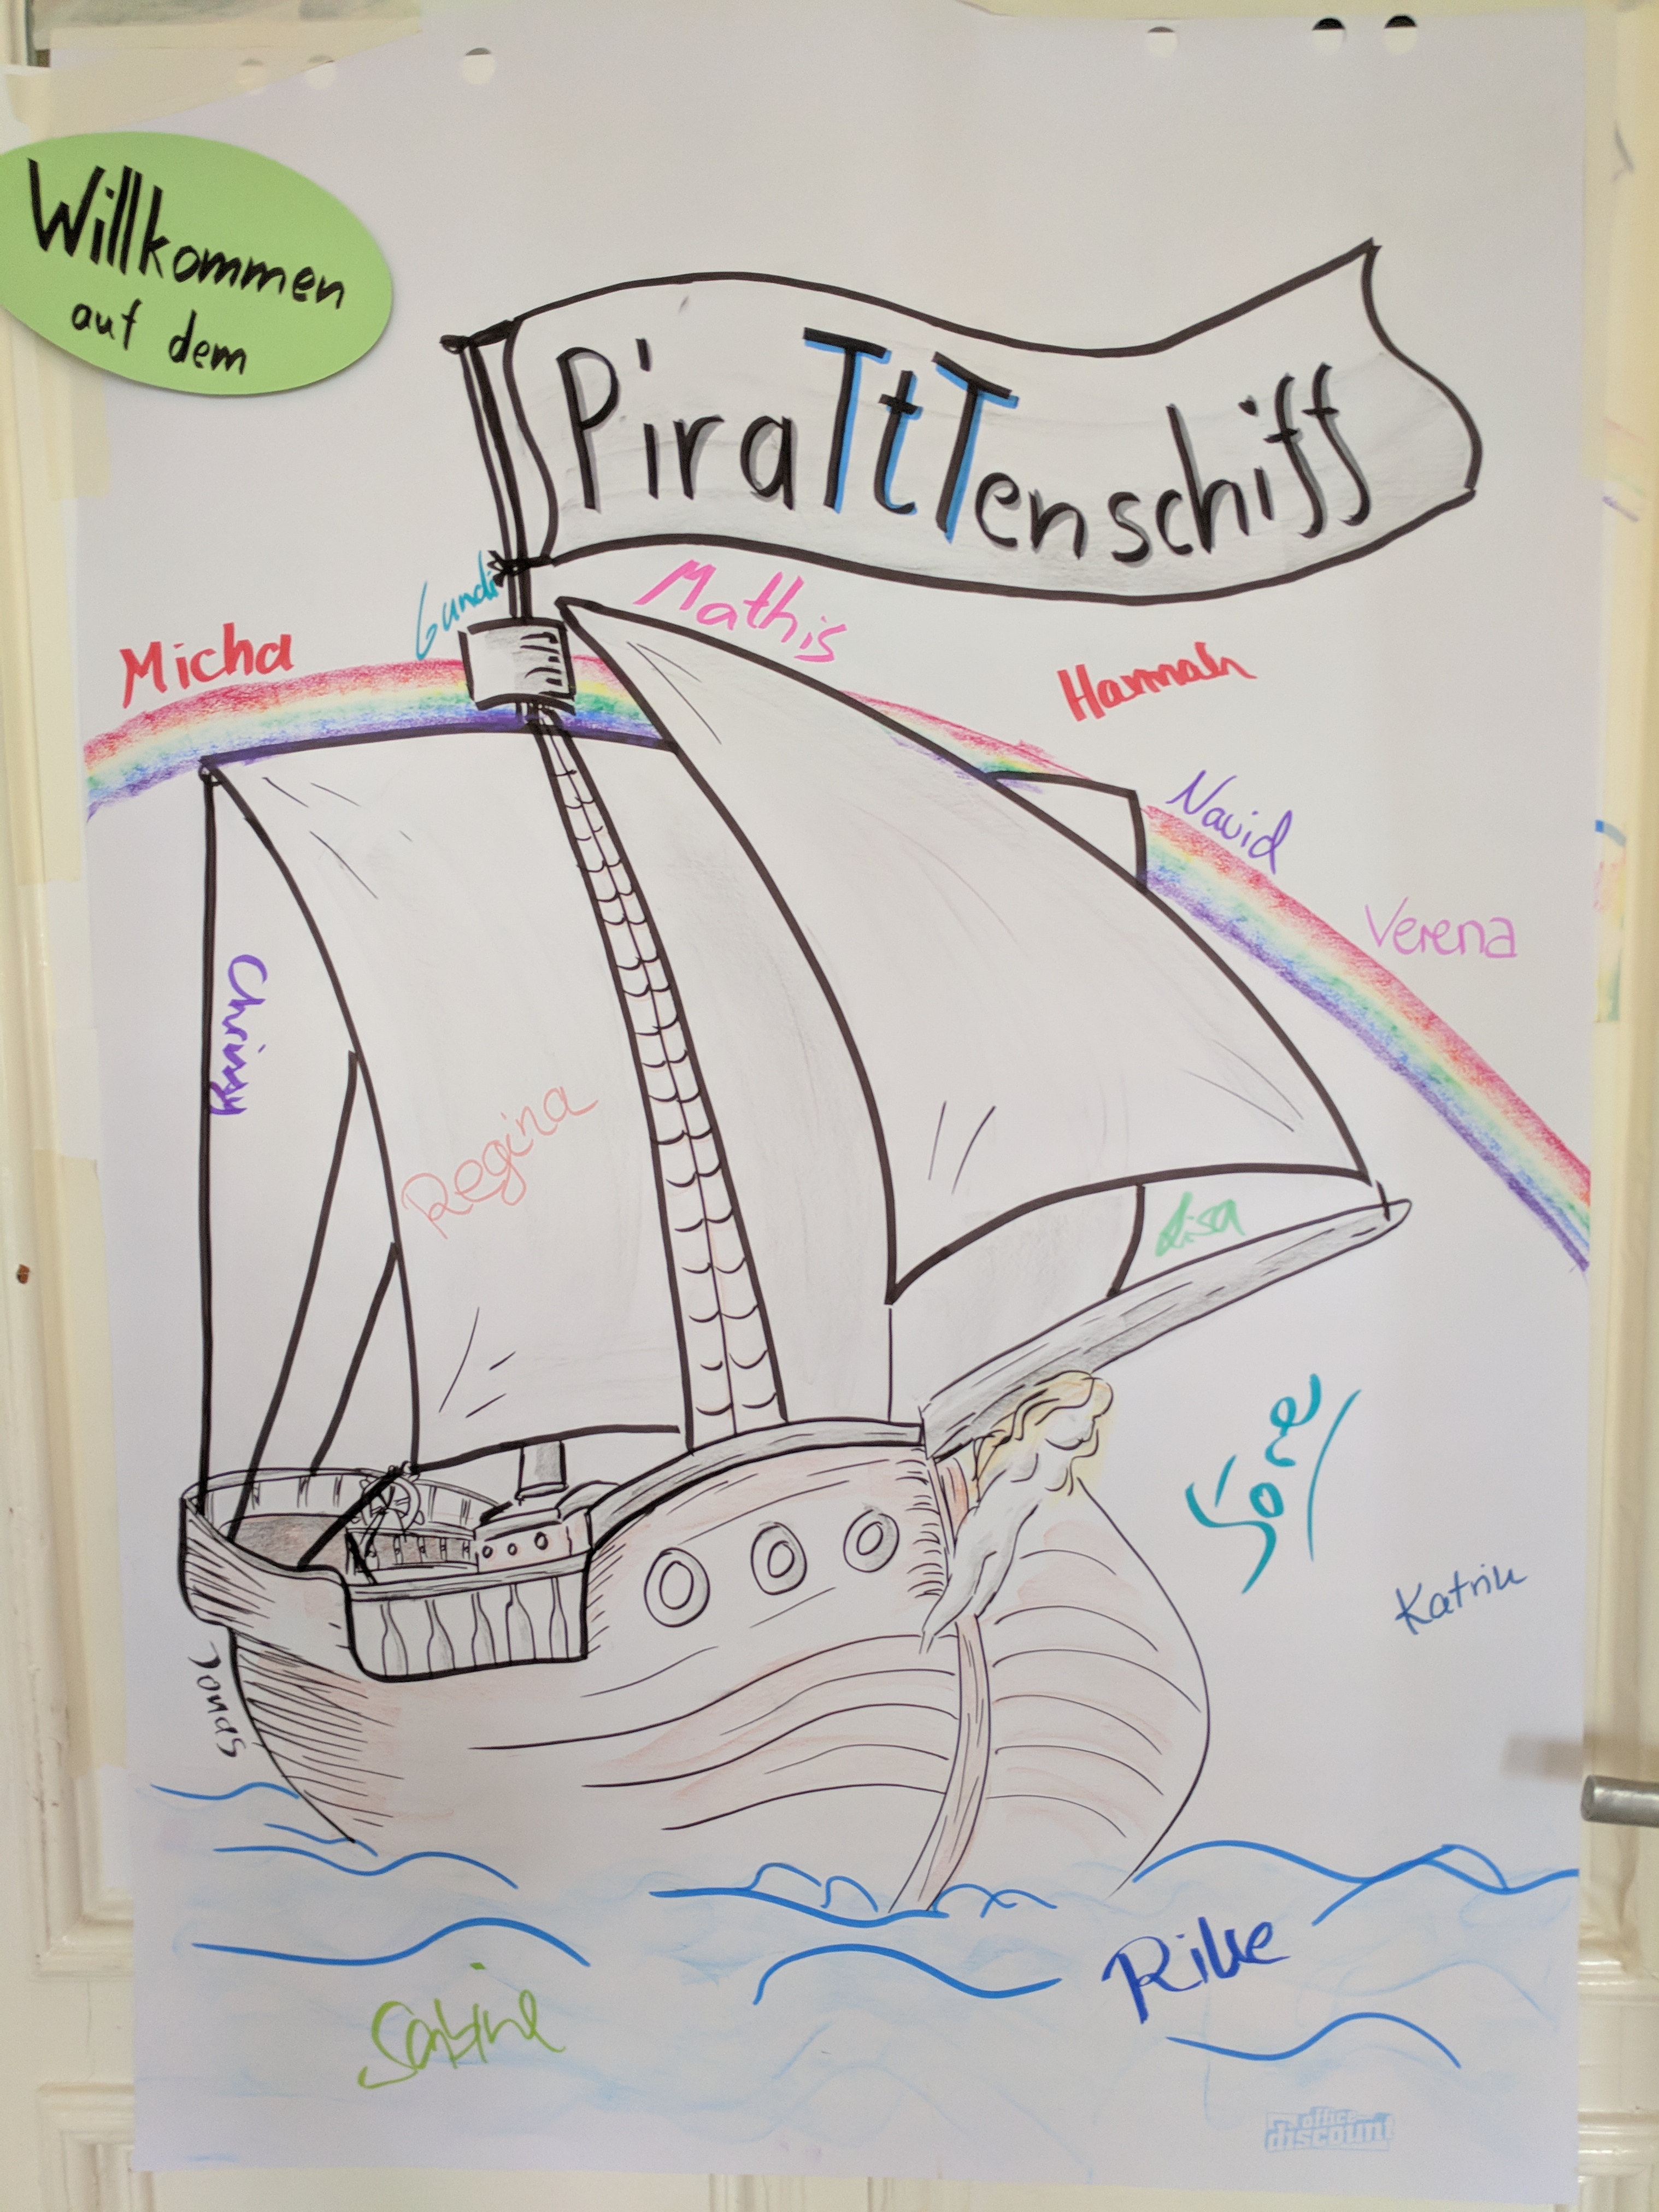 Willkommen
auf dem
PiraTtTenschiff
Gundi
Mathis
Micha
Hannah
Navid
Verena
Chrissy
Regina
Lisa
Katrin
Jonas
Rike
Sabine
office
discount